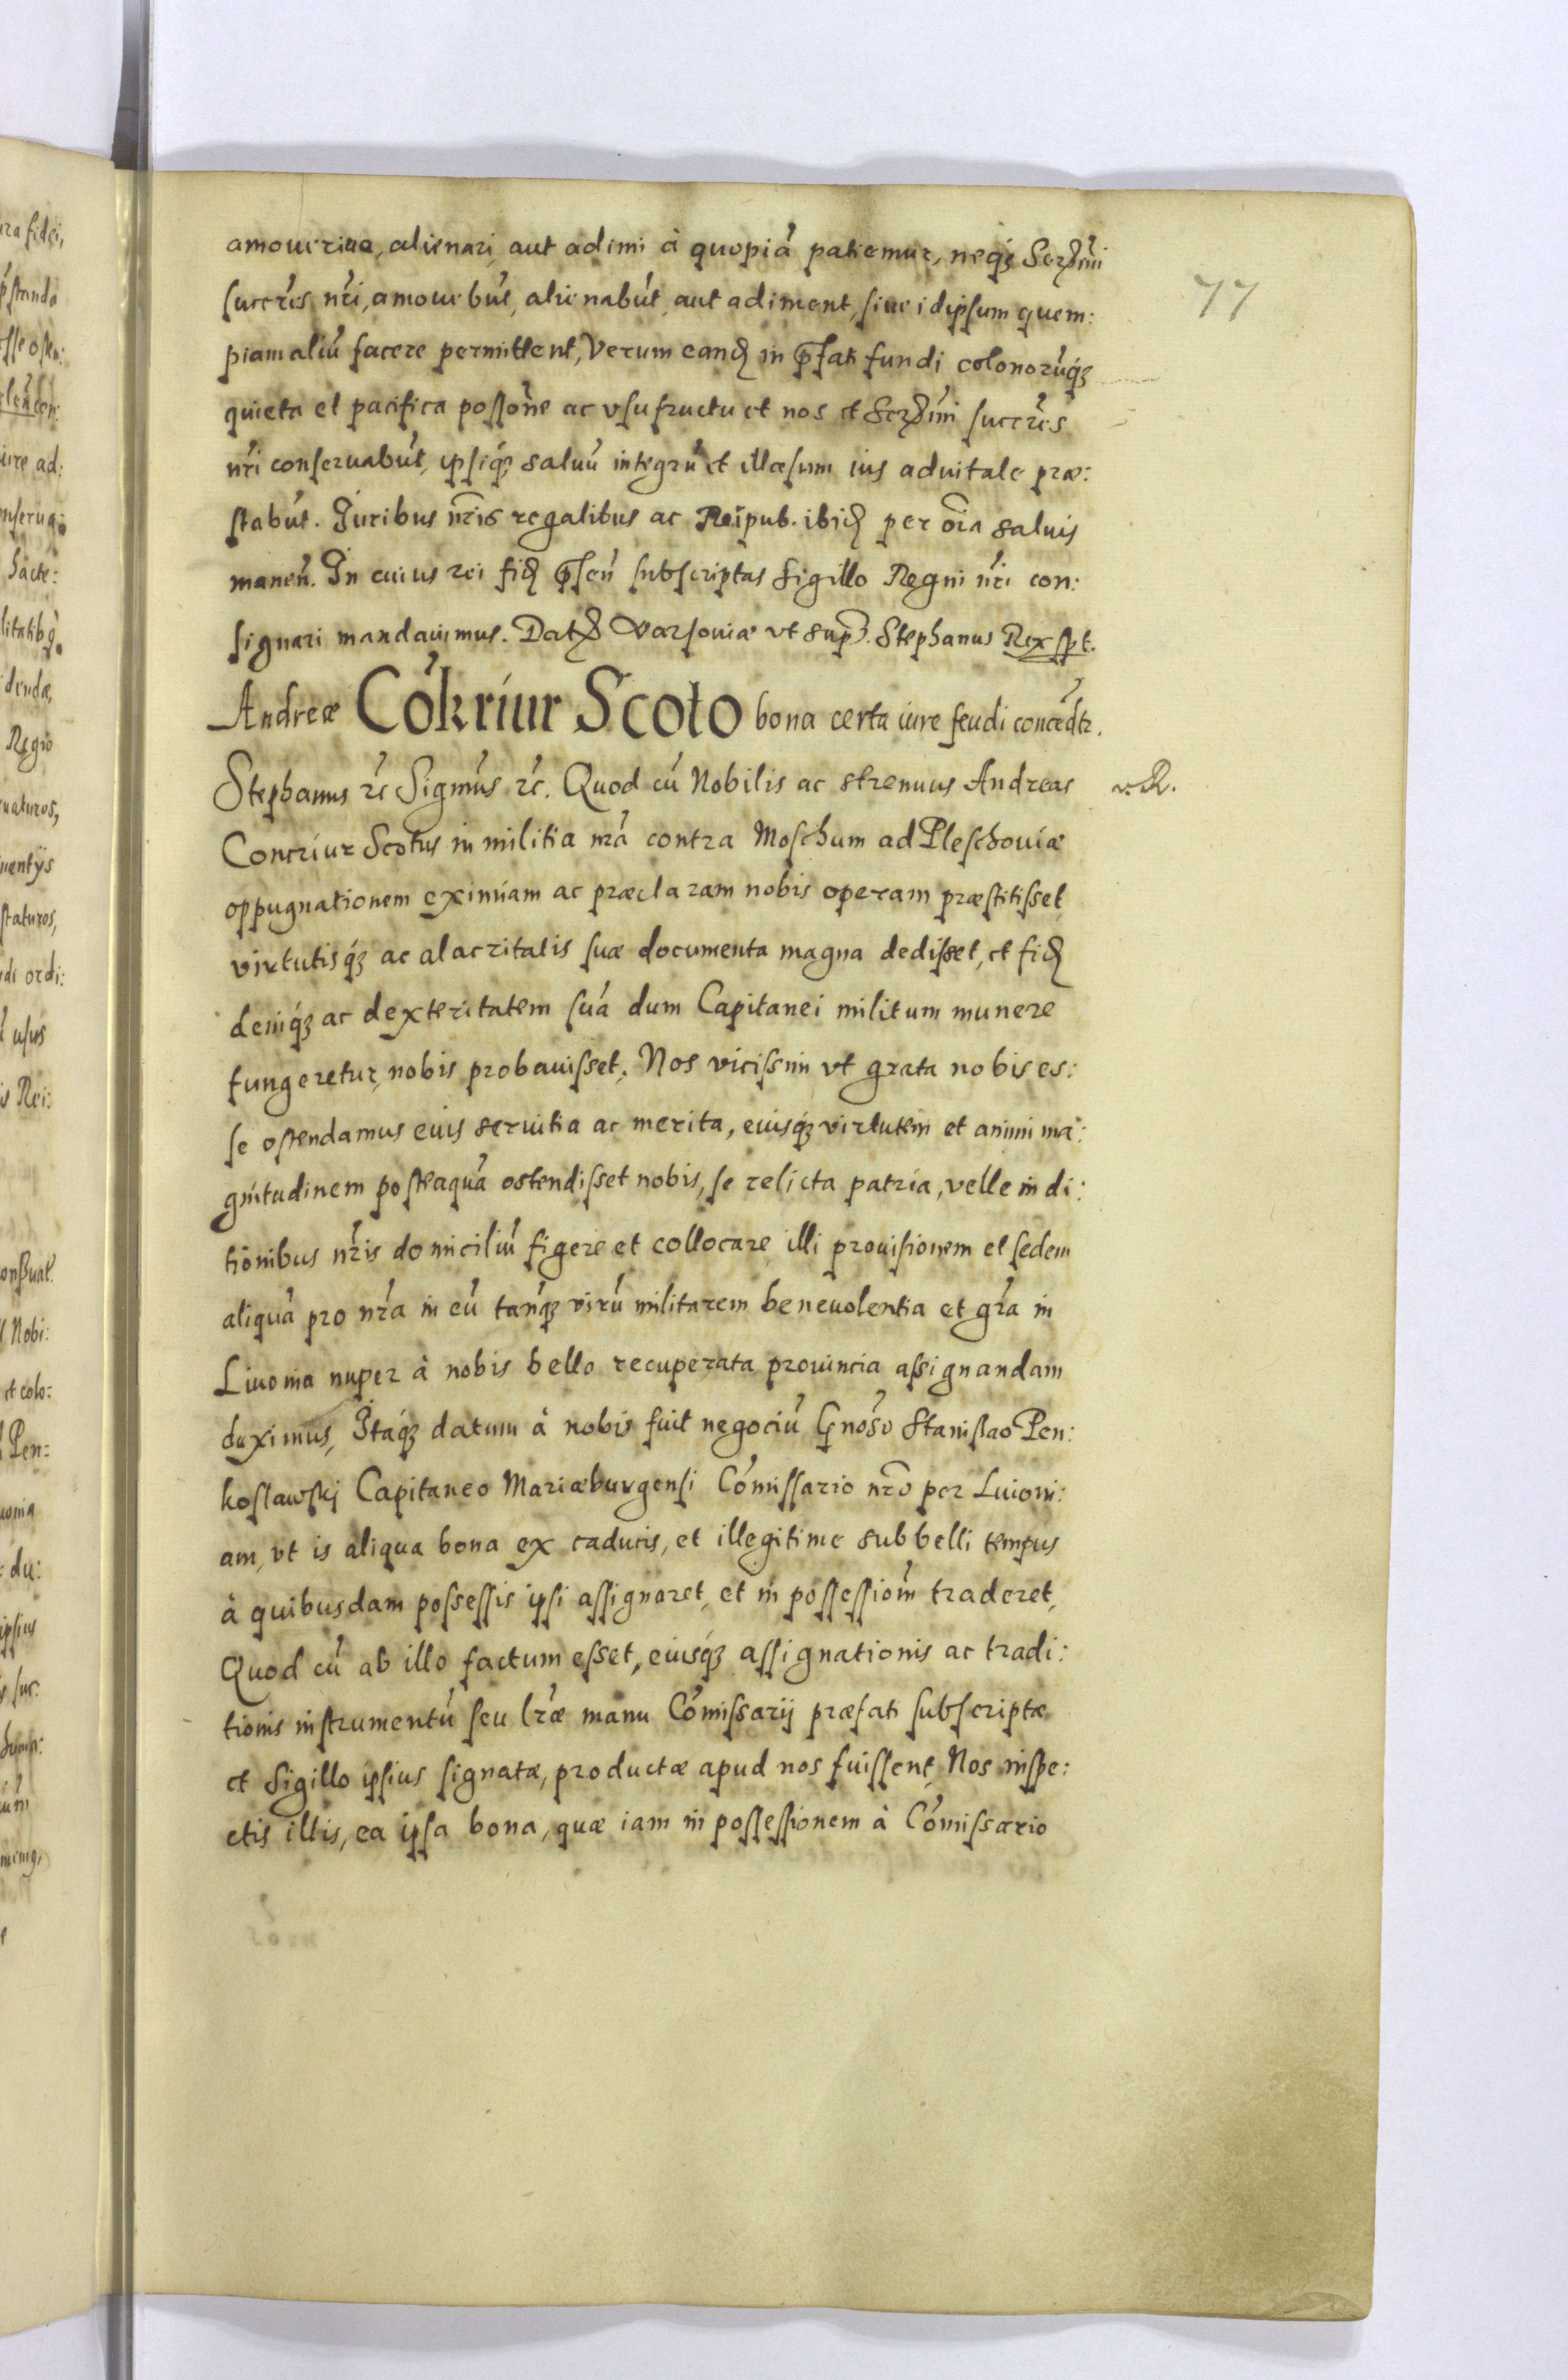 amoueriue, alienari, aut adimi à quopiã patiemur, neqꝫ Serᵐⁱ
succr̃es nr̃i, amouebũt, alienabũt, aut adiment, siue idipsum quem:
piam aliũ facere permittent, Verum eand in p̃fati fundi colonorũqꝫ
quieta et pacifica possõne ac vsufructu et nos et Serᵐⁱ succr̃es
nr̃i conseruabũt, ipsiqꝫ saluũ integrũ et illæsum ius aduitale præ:
stabũt. Juribus nr̃is regalibus ac Reipub. ibid per oĩa saluis
maneñ. In cuius rei fid p̃señ subscriptas Sigillo Regni nr̃i con:
signari mandauimus. Dat Varsouiæ vt sup̃. Stephanus Rex spt.
77
Andreæ Cõkriur Scoto bona certa iure feudi concedtr.
Stephanus rc̃ Sigm̃us rc̃. Quod cũ Nobilis ac strenuus Andreas
Concriur Scotus in militia nr̃a contra Moschum ad Pleschouiæ
oppugnationem eximiam ac præclaram nobis operam præstitisset,
virtutisqꝫ ac alacritatis suæ documenta magna dedisset, et fid
deniqꝫ ac dexteritatem suã dum Capitanei militum munere
fungeretur, nobis probauisset. Nos vicissim vt grata nobis es:
se ostendamus eius seruitia ac merita, eiusqꝫ virtutem et animi ma:
gnitudinem posteaquã ostendisset nobis, se relicta patria, velle in di:
tionibus nr̃is domiciliũ figere et collocare, illi prouisionem et sedem
aliquã pro nr̃a in eũ tanqꝫ virũ militarem beneuolentia et gr̃a in
Liuonia nuper à nobis bello recuperata prouincia assignandam
duximus, Itaqꝫ datum à nobis fuit negociũ Gnõso Stanislao Pen:
koslawskj Capitaneo Mariæburgensi Cõmissario nr̃o per Liuoni:
am, vt is aliqua bona ex caducis, et illegitime sub belli tempus
à quibusdam possessis ipsi assignaret, et in possessiom̃ traderet,
Quod cũ ab illo factum esset, eiusqꝫ assignationis ac tradi:
tionis instrumentũ seu lr̃æ manu Cõmissarij præfati subscriptæ
et Sigillo ipsius signatæ, productæ apud nos fuissent, Nos inspe:
ctis illis, ea ipsa bona, quæ iam in possessionem à Cõmissario